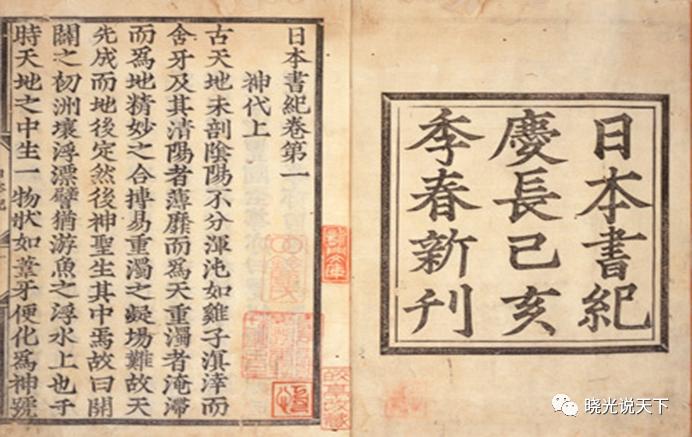 日本書紀
慶長己亥
季春新刊
日本書紀卷第一
神代上
古天地未剖陰陽不分渾沌如雞子溟涬而
含牙及其清陽者薄靡而爲天重濁者淹滯
而爲地精妙之合摶易重濁之凝場難故天
先成而地後定然後神聖生其中焉故曰開
闢之初洲壤浮漂譬猶游魚之浮水上也于
時天地之中生一物狀如葦牙便化爲神號
晓光说天下